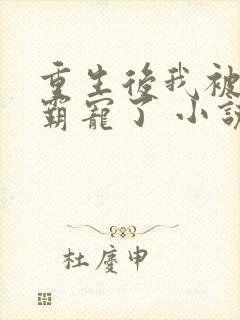 重生後我被
霸寵了 小說
杜慶申